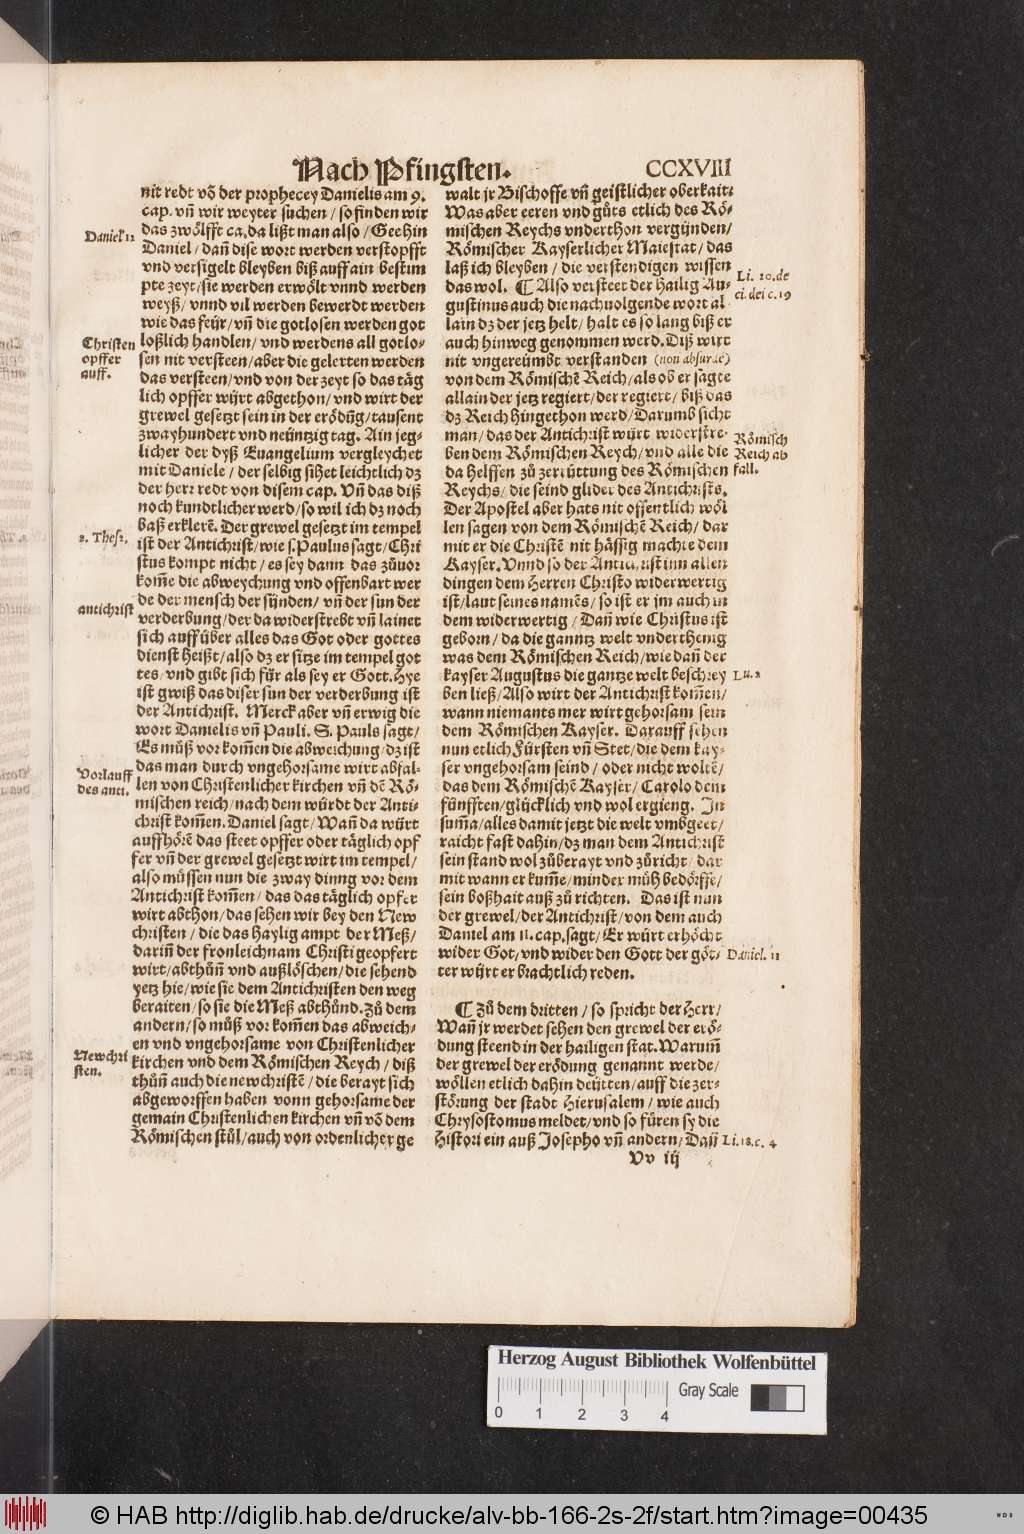 Nach Pfingsten. CCXVIII
nit redt võ der prophecey Danielis am 9.
cap. vñ wir weyter suchen / so finden wir
das zwölfft ca, da lißt man also / Gee hin
Daniel / dañ dise wort werden verstopfft
vnd versigelt bleyben biß auff ain bestim
pte zeyt / sie werden erwölt vnnd werden
weyß / vnnd vil werden bewerdt werden
wie das feür / vñ die gotlosen werden got
loßlich handlen / vnd werdens all gotlo-
sen nit versteen / aber die gelerten werden
das versteen / vnd von der zeyt so das täg
lich opffer würt abgethon / vnd wirt der
grewel gesetzt sein in der erödũg / tausent
zwayhundert vnd neüntzig tag. Ain jeg-
licher der dyß Euangelium vergleychet
mit Daniele / der selbig sihet leichtlich dz
der herr redt von disem cap. Vñ das diß
noch kundtlicher werd / so wil ich dz noch
baß erklerẽ. Der grewel gesetzt im tempel
ist der Antichrist / wie s. Paulus sagt / Chri
stus kompt nicht / es sey dann das züuor
kom̃e die abweychung vnd offenbart wer
de der mensch der sünden / vñ der sun der
verderbung / der da widerstrebt vñ lainet
sich auff über alles das Got oder gottes
dienst heißt / also dz er sitze im tempel got
tes / vnd gibt sich für als sey er Gott. Hye
ist gwiß das diser sun der verderbung ist
der Antichrist. Merck aber vñ erwig die
wort Danielis vñ Pauli. S. Pauls sagt /
Es müß vor kom̃en die abweichung / dz ist
das man durch vngehorsame wirt abfal-
len von Christenlicher kirchen vñ dẽ Rö-
mischen reich / nach dem würdt der Anti-
christ kom̃en. Daniel sagt / Wañ da würt
auffhörẽ das steet opffer oder täglich opf
fer vñ der grewel gesetzt wirt im tempel /
also müssen nun die zway dinng vor dem
Antichrist kom̃en / das das täglich opfer
wirt abthon / das sehen wir bey den New
christen / die das haylig ampt der Meß /
dariñ der fronleichnam Christi geopfert
wirt / abthůñ vnd außlöschen / die sehend
yetz hie / wie sie dem Antichristen den weg
beraiten / so sie die Meß abthůnd. Zů dem
andern / so můß vor kom̃en das abweich-
en vnd vngehorsame von Christenlicher
kirchen vnd dem Römischen Reych / diß
thůñ auch die newchristẽ / die berayt sich
abgeworffen haben vonn gehorsame der
gemain Christenlichen kirchen vñ võ dem
Römischen stůl / auch von ordenlicher ge
Daniel 12
Christen
opffer
auff.
2. Thess.
antichrist
Vorlauff
des anti.
Newchri
sten.
walt jr Bischoffe vñ geistlicher oberkait:
Was aber eeren vnd gůts etlich des Rö-
mischen Reychs vnderthon vergünden /
Römischer Kayserlicher Maiestat / das
laß ich bleyben / die verstendigen wissen
das wol. ¶ Also versteet der hailig Au-
gustinus auch die nachuolgende wort al
lain dz der jetz helt / halt es so lang biß er
auch hinweg genommen werd. Diß wirt
nit vngereümbt verstanden (non absurde)
von dem Römischẽ Reich / als ob er sagte
allain der jetz regiert / der regiert / biß das
dz Reich hingethon werd / Darumb sicht
man / das der Antichrist würt widerstre-
ben dem Römischen Reych / vnd alle die
da helffen zů zerrüttung des Römischen
Reychs / die seind glider des Antichrists.
Der Apostel aber hats nit offentlich wöl
len sagen von dem Römischẽ Reich / dar
mit er die Christẽ nit hässig machte dem
Kayser. Vnnd so der Antichrist inn allen
dingen dem Herren Christo widerwertig
ist / laut seines namẽs / so ist er jm auch in
dem widerwertig / Dañ wie Christus ist
geborn / da die ganntz welt vnderthenig
was dem Römischen Reich / wie dañ der
kayser Augustus die gantze welt beschrey
ben ließ / Also wirt der Antichrist kom̃en /
wann niemants mer wirt gehorsam sein
dem Römischen Kayser. Darauff sehen
nun etlich Fürsten vñ Stet / die dem kay-
ser vngehorsam seind / oder nicht woltẽ /
das dem Römischẽ Kayser / Carolo dem
fünfften / glücklich vnd wol ergieng. In
sum̃a / alles damit jetzt die welt vmbgeet /
raicht fast dahin / dz man dem Antichrist
sein stand wol zůberayt vnd zůricht / dar
mit wann er kum̃e / minder müh bedörffe /
sein boßhait auß zů richten. Das ist nun
der grewel / der Antichrist / von dem auch
Daniel am 11. cap. sagt / Er würt erhöcht
wider Got / vnd wider den Gott der göt-
ter würt er brachtlich reden.
¶ Zů dem dritten / so spricht der Herr /
Wañ jr werdet sehen den grewel der erö-
dung steend in der hailigen stat. Waruñ
der grewel der erödung genannt werde /
wöllen etlich dahin deütten / auff die zer-
störung der stadt Hierusalem / wie auch
Chrysostomus meldet / vnd so füren sy die
Histori ein auß Josepho vñ andern / Dañ
Li. 20. de
ci. dei c. 19
Römisch
Reich ab
fall.
Lu. 2
Daniel. 11
Li. 18. c. 4
Vv iij
Herzog August Bibliothek Wolfenbüttel
Gray Scale
0 1 2 3 4
© HAB http://diglib.hab.de/drucke/alv-bb-166-2s-2f/start.htm?image=00435